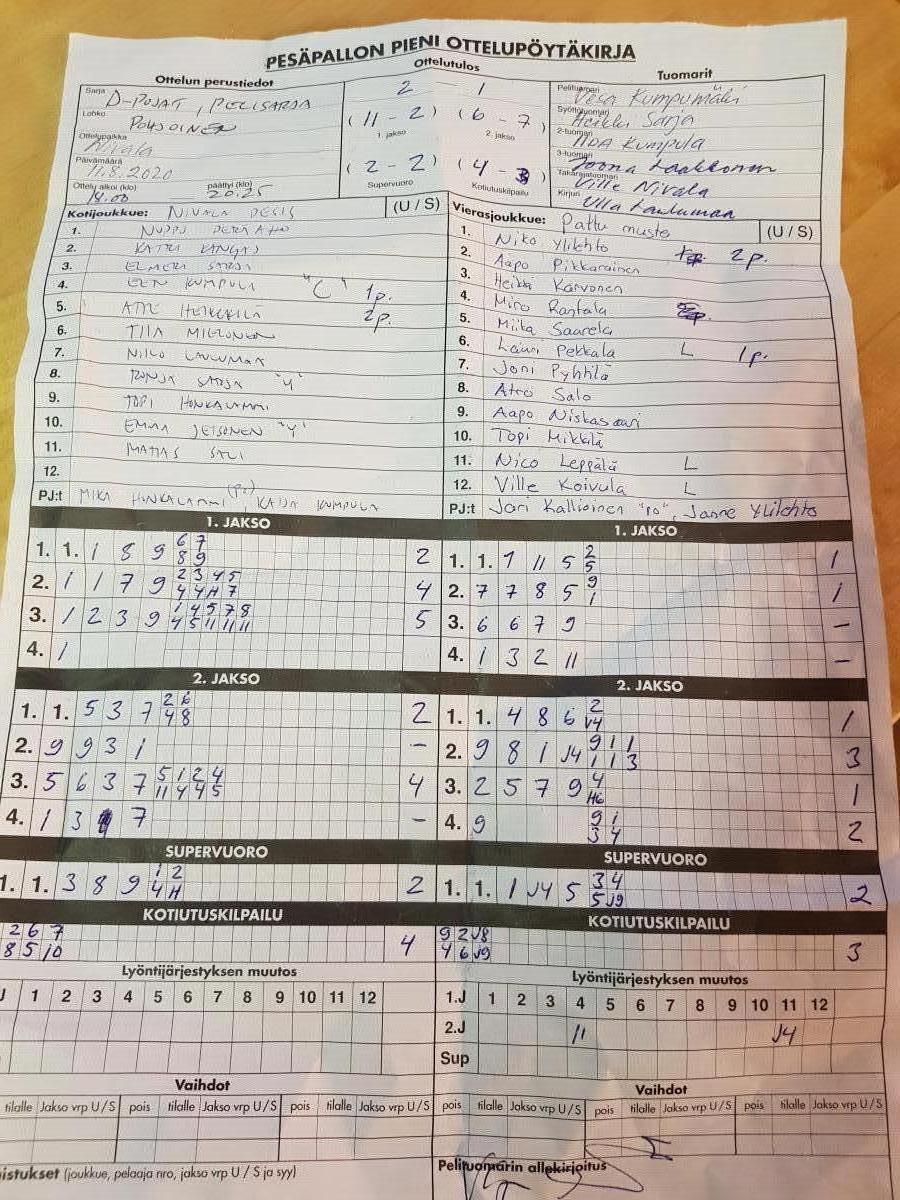 PESÄPALLON PIENI OTTELUPÖYTÄKIRJA
Ottelun perustiedot
Ottelutulos
Tuomarit
Sarja D-POJAT, PELISARJA
Lohko POHJOINEN
Ottelupaikka Nivala
Päivämäärä 11.8.2020
Ottelu alkoi (klo) 18.00 päättyi (klo) 20.25
2 - 1
(11 - 2) (6 - 7)
1. jakso 2. jakso
(2 - 2) (4 - 3)
Supervuoro Kotiutuskilpailu
Pelituomari Vesa Kumpumäki
Syöttötuomari Heikki Sarja
2-tuomari IIDA KUMPULA
3-tuomari Joona Laakkonen
Takarajatuomari Ville Nivala
Kirjuri Ulla Laulumaa
Kotijoukkue: NIVALA PESIS (U / S)
1. NUPPU PERÄAHO
2. KATRI KANGAS
3. ELMERI SARJA
4. EEN KUMPULA "C" 1p.
5. ATTE HEIKKILÄ 2p.
6. TIIA MIELONEN
7. NIILO LAULUMAA
8. RONJA SARJA "Y"
9. TOPI HONKALAMMI
10. EMMA JETSONEN "Y"
11. MATIAS SALI
12.
PJ:t MIKA HONKALAMMI (P.), KAIJA KUMPULA
Vierasjoukkue: Pattu musta (U / S)
1. Niko Ylilehto 2p.
2. Aapo Pikkarainen
3. Heikki Karvonen
4. Miro Rantala
5. Miika Saarela
6. Lauri Pekkala L 1p.
7. Joni Pyhtilä
8. Atro Salo
9. Aapo Niskasaari
10. Topi Mikkilä
11. Nico Leppälä L
12. Ville Koivula L
PJ:t Jari Kallioinen "10", Janne Ylilehto
1. JAKSO
1. 1. 1 8 9 6 7 2
8 9
2. 1 1 7 9 2 3 4 5 4
4 4 H 7
3. 1 2 3 9 1 4 5 7 8 5
4 5 11 11 11
4. 1
1. JAKSO
1. 1. 1 11 5 2 1
5
2. 7 7 8 5 9 1
1
3. 6 6 7 9 –
4. 1 3 2 11 –
2. JAKSO
1. 1. 5 3 7 2 6 2
4 8
2. 9 9 3 1 –
3. 5 6 3 7 5 1 2 4 4
11 4 4 5
4. 1 3 7 –
2. JAKSO
1. 1. 4 8 6 2 1
J4
2. 9 8 1 J4 9 1 1 3
1 1 3
3. 2 5 7 9 4 1
H6
4. 9 9 1 2
3 4
SUPERVUORO
1. 1. 3 8 9 1 2 2
4 H
SUPERVUORO
1. 1. 1 J4 5 3 4 2
5 J9
KOTIUTUSKILPAILU
2 6 7 4
8 5 10
KOTIUTUSKILPAILU
9 2 J8 3
4 6 J9
Lyöntijärjestyksen muutos
J 1 2 3 4 5 6 7 8 9 10 11 12
Lyöntijärjestyksen muutos
1.J 1 2 3 4 5 6 7 8 9 10 11 12
2.J 11 J4
Sup
Vaihdot
tilalle Jakso vrp U / S pois tilalle Jakso vrp U / S pois tilalle Jakso vrp U / S
Vaihdot
pois tilalle Jakso vrp U / S pois tilalle Jakso vrp U / S pois tilalle Jakso vrp U / S
istukset (joukkue, pelaaja nro, jakso vrp U / S ja syy)
Pelituomarin allekirjoitus